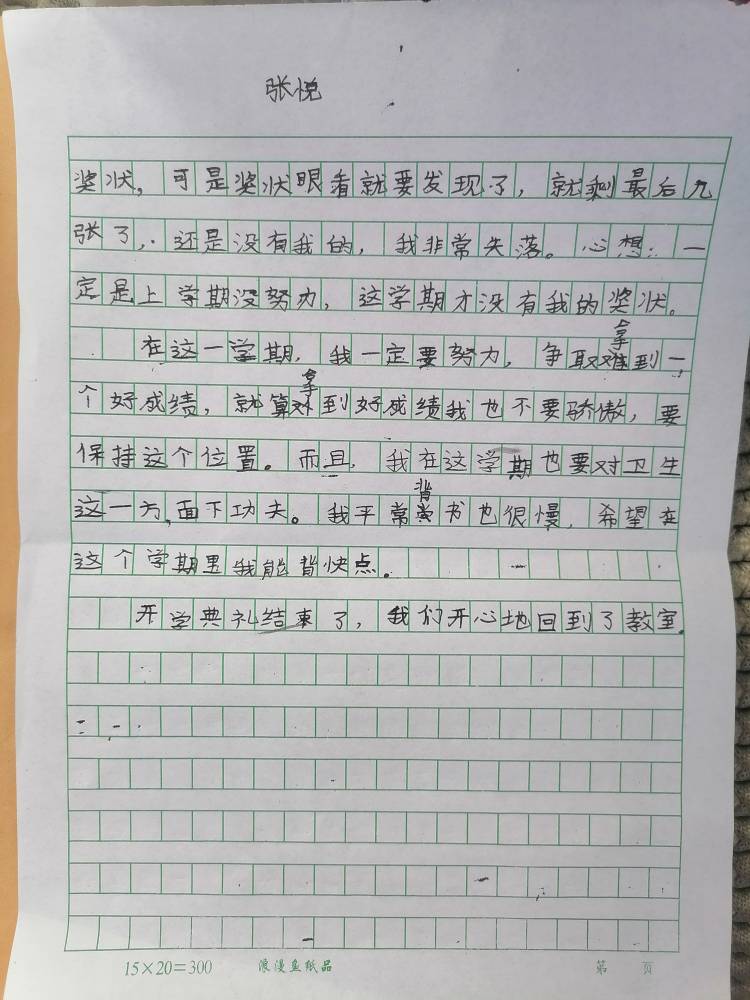 张悦
奖状，可是奖状眼看就要发现了，就剩最后九
张了，还是没有我的，我非常失落。心想：一
定是上学期没努力，这学期才没有我的奖状。
在这一学期，我一定要努力，争取拿到一
个好成绩，就算拿到好成绩我也不要骄傲，要
保持这个位置。而且，我在这学期也要对卫生
这一方面下功夫。我平常背书也很慢，希望在
这个学期里我能背快点。
开学典礼结束了，我们开心地回到了教室。
15×20=300 浪漫鱼纸品 第 页